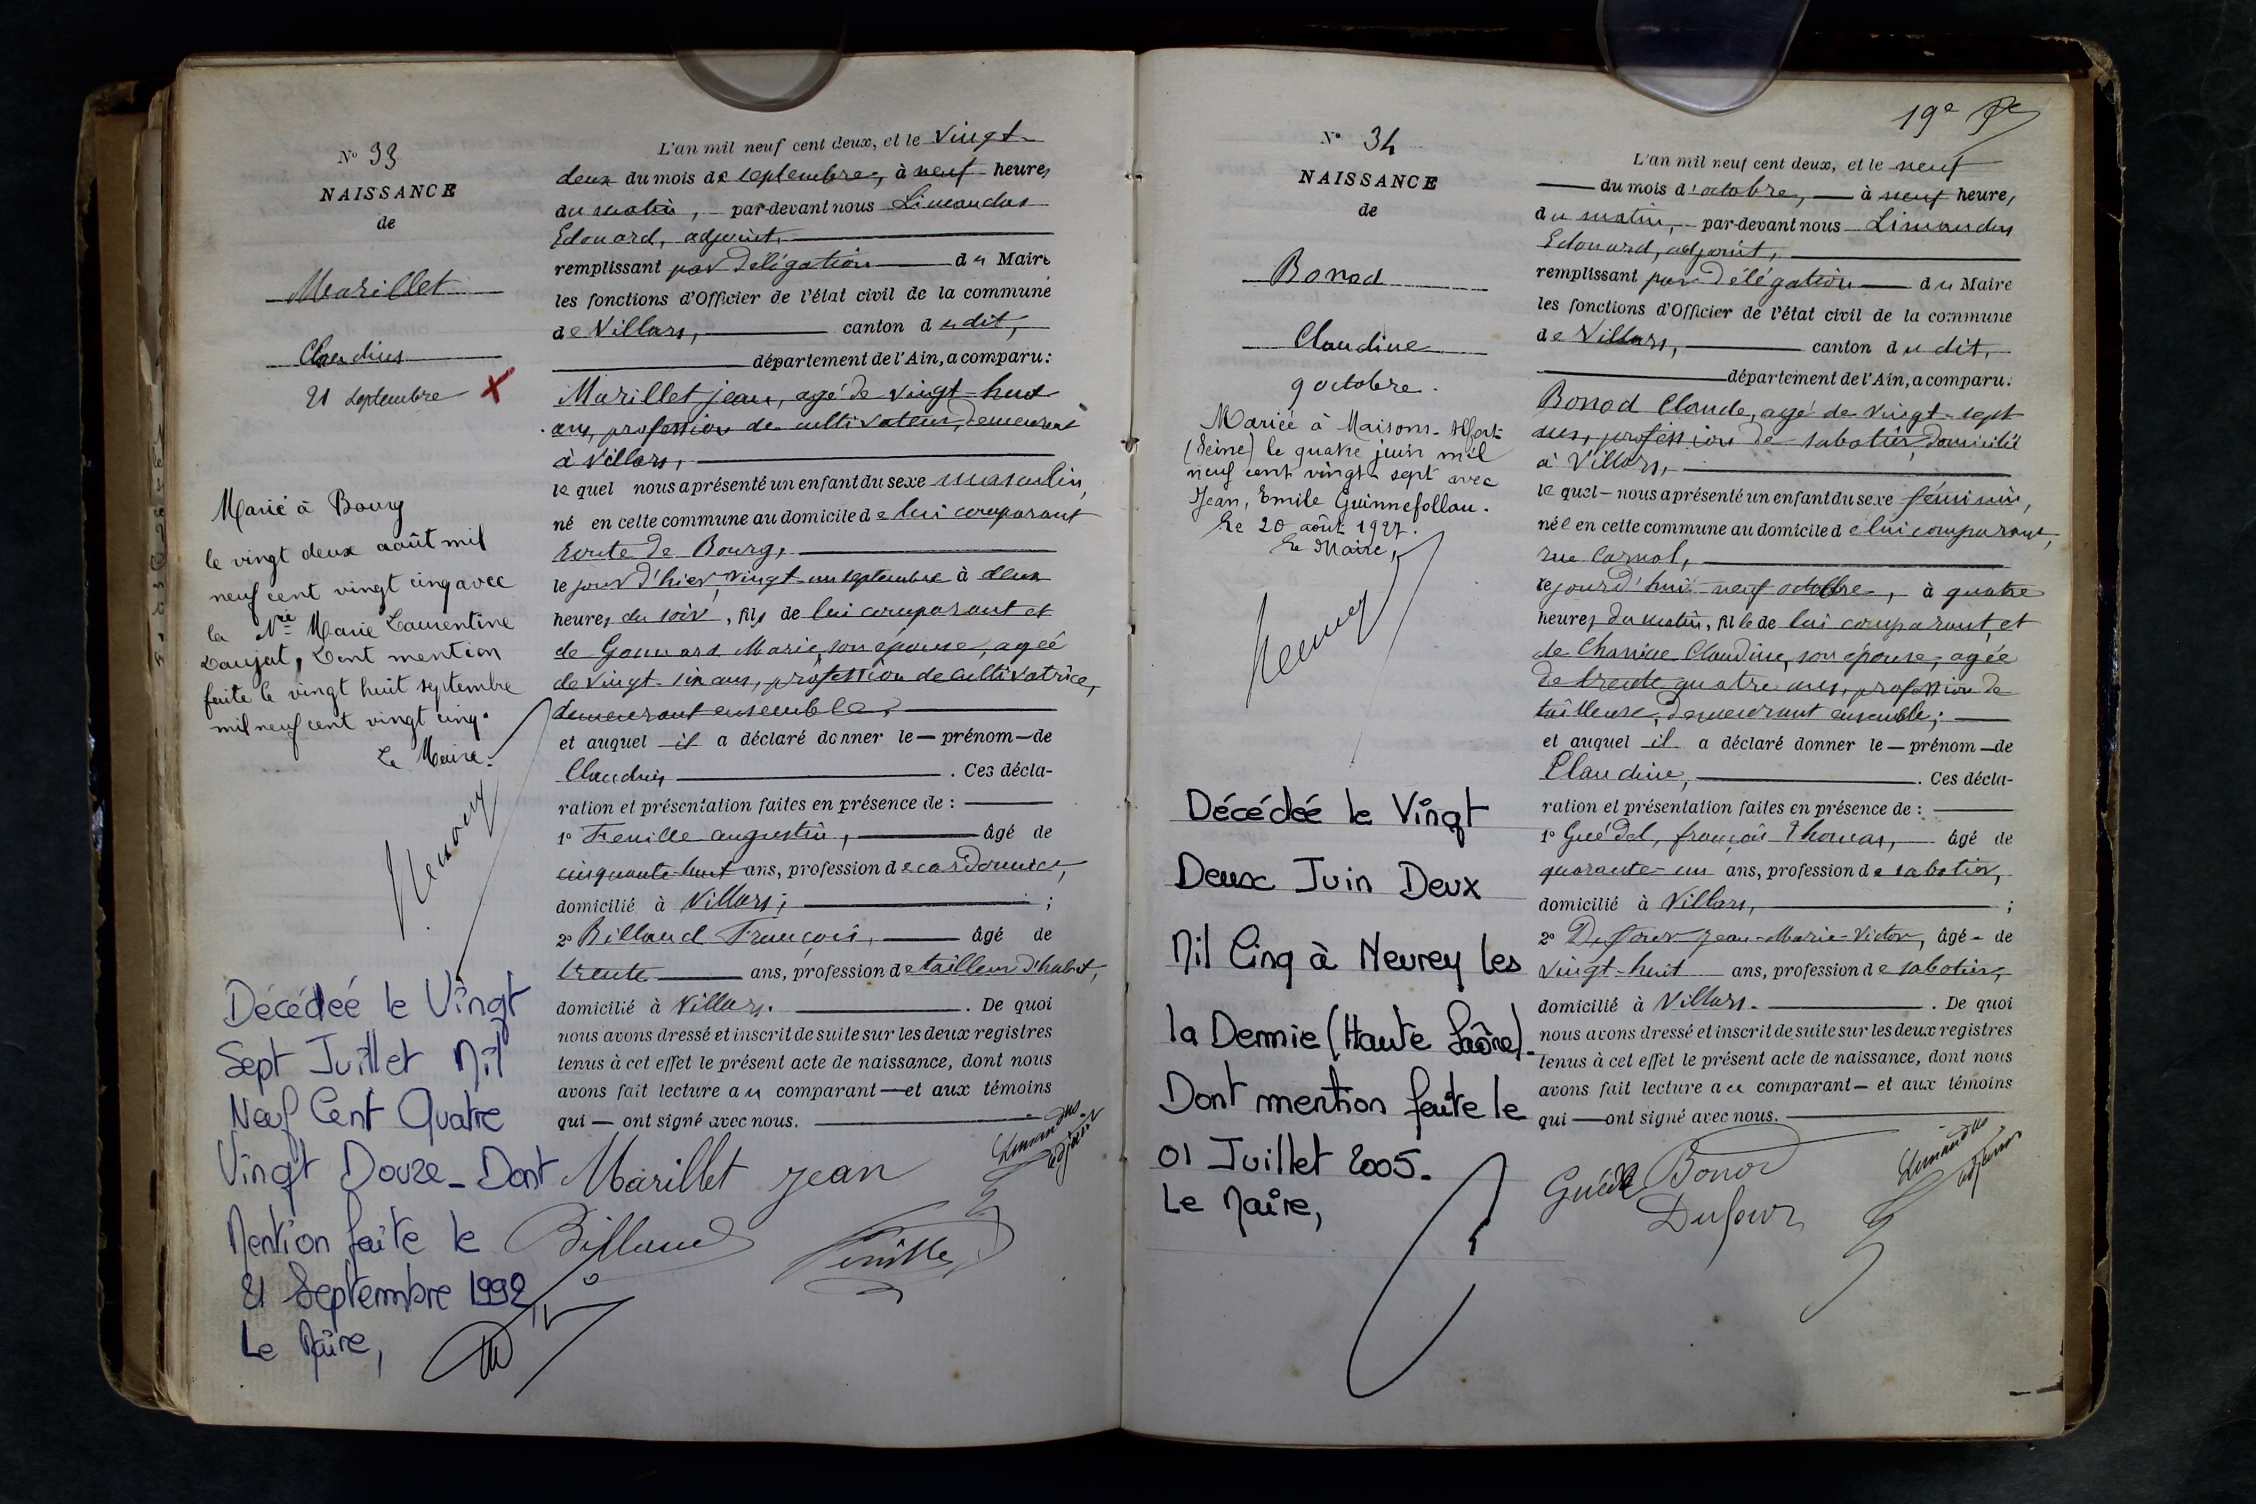 N° 33
NAISSANCE
de
Marillet
Claudius
21 septembre X
Marié à Bourg
le vingt deux août mil
neuf cent vingt cinq avec
la Née Marie Laurentine
Daujat, Dont mention
faite le vingt huit septembre
mil neuf cent vingt cinq.
Le Maire.
Décédeé le Vingt
Sept Juillet Mil
Neuf Cent Quatre
Vingt Douze_ Dont
Mention faite le
21 Septembre 1992
Le Maire,
L'an mil neuf cent deux, et le vingt-
deux du mois de septembre, à neuf heures
du matin, par-devant nous Limandas
Edouard, adjoint,
remplissant par délégation du Maire
les fonctions d'Officier de l'état civil de la commune
de Villars, canton du dit,
département de l'Ain, a comparu:
Marillet jean, agé de vingt-huit
ans, profession de cultivateur, demeurant
à Villars,
le quel nous a présenté un enfant du sexe masculin,
né en cette commune au domicile de lui comparant
route de Bourg,
le jour d'hier, vingt-un septembre à deux
heures du soir, fils de lui comparant et
de Gounard Marie, son épouse, agée
de vingt-six ans, profession de cultivatrice,
demeurant ensemble,
et auquel il a déclaré donner le — prénom — de
Claudius . Ces décla-
ration et présentation faites en présence de :
1° Feuille augustin, âgé de
cinquante-huit ans, profession de cordonnier,
domicilié à Villars; ;
2° Billaud François, âgé de
trente ans, profession de tailleur d'habit,
domicilié à Villars. . De quoi
nous avons dressé et inscrit de suite sur les deux registres
tenus à cet effet le présent acte de naissance, dont nous
avons fait lecture au comparant — et aux témoins
qui — ont signé avec nous.
Limandas
adjoint
Marillet jean
Billaud
Feuille
19e
N° 34
NAISSANCE
de
Bonod
Claudine
9 octobre.
Mariée à Maisons-Alfort
(Seine) le quatre juin mil
neuf cent vingt-sept avec
Jean, Emile Guinnefollau.
Le 20 août 1927.
Le Maire,
Décédée le Vingt
Deux Juin Deux
Mil Cinq à Neurey les
la Demie (Haute Saône).
Dont mention faite le
01 Juillet 2005.
Le Maire,
L'an mil neuf cent deux, et le neuf
du mois d'octobre, à neuf heures
du matin, par-devant nous Limandas
Edouard, adjoint,
remplissant par délégation du Maire
les fonctions d'Officier de l'état civil de la commune
de Villars, canton du dit,
département de l'Ain, a comparu:
Bonod Claude, agé de vingt-sept
ans, profession de sabotier, domicilié
à Villars,
le quel — nous a présenté un enfant du sexe féminin,
née en cette commune au domicile de lui comparant,
rue Carnot,
ce jourd'hui neuf octobre, à quatre
heures du matin, fille de lui comparant, et
de Claudine, son épouse, agée
de trente-quatre ans, profession de
tailleuse, demeurant ensemble;
et auquel il a déclaré donner le — prénom — de
Claudine, . Ces décla-
ration et présentation faites en présence de :
1° Guédel, françois Thomas, âgé de
quarante-un ans, profession de sabotier,
domicilié à Villars, ;
2° Dufour jean-Marie-Victor, âgé - de
vingt-huit ans, profession de sabotier,
domicilié à Villars. . De quoi
nous avons dressé et inscrit de suite sur les deux registres
tenus à cet effet le présent acte de naissance, dont nous
avons fait lecture au comparant — et aux témoins
qui — ont signé avec nous.
Guédel Bonod
Dufour
Limandas
adjoint